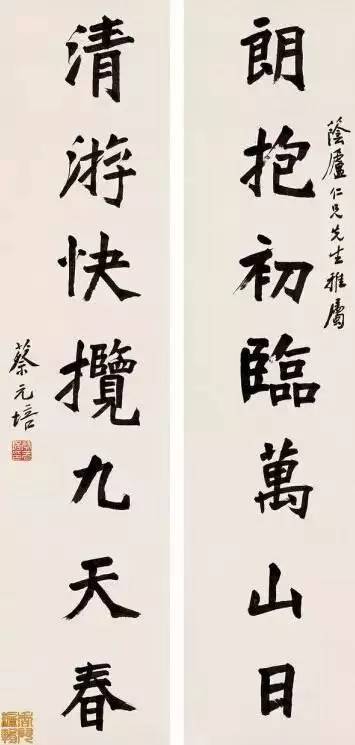 朗抱初臨萬山日
蔭廬仁兄先生雅屬
清游快攬九天春
蔡元培